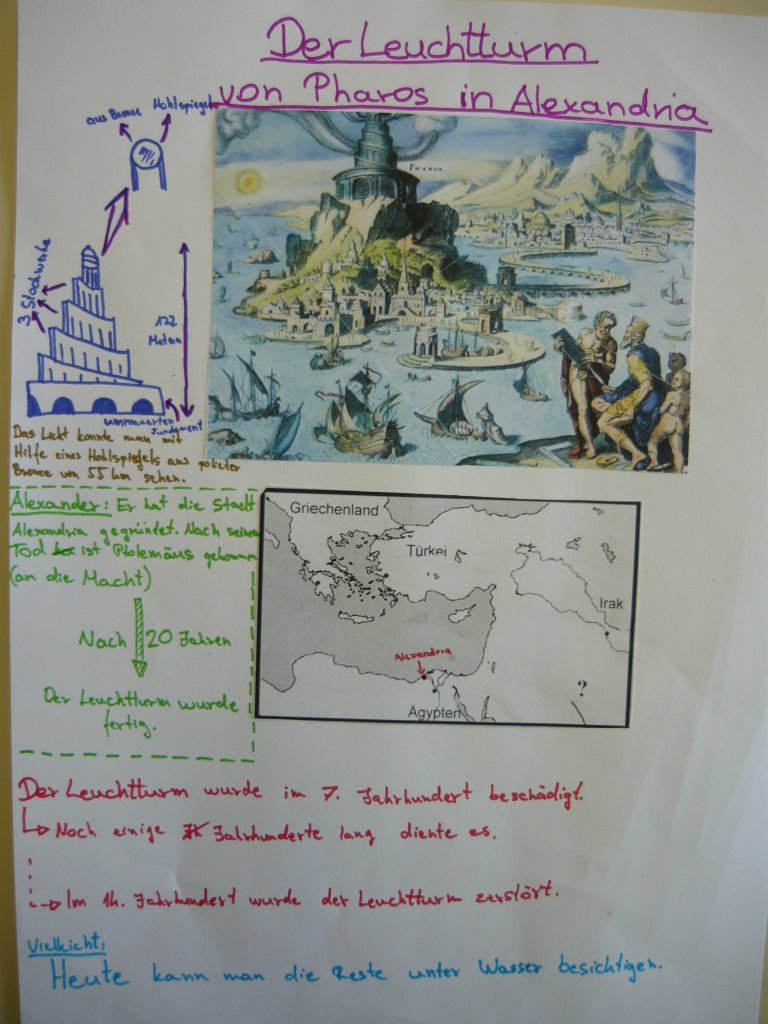 Der Leuchtturm
von Pharos in Alexandria
aus Bronze
Hohlspiegel
3 Stockwerke
122
Meter
ummauerten
Fundgment
Das Licht konnte man mit
Hilfe eines Hohlspiegels aus polieter
Bronze von 55 km sehen.
PHAROS
Alexander: Er hat die Stadt
Alexandria gegründet. Nach seinem
Tod ist Ptolemäus gekommen
(an die Macht)
Nach 20 Jahren
Der Leuchtturm wurde
fertig.
Griechenland
Türkei
Irak
Alexandria
Ägypten
?
Der Leuchtturm wurde im 7. Jahrhundert beschädigt.
Noch einige Jahrhunderte lang diente es.
Im 14. Jahrhundert wurde der Leuchtturm zerstört.
Vielleicht:
Heute kann man die Reste unter Wasser besichtigen.